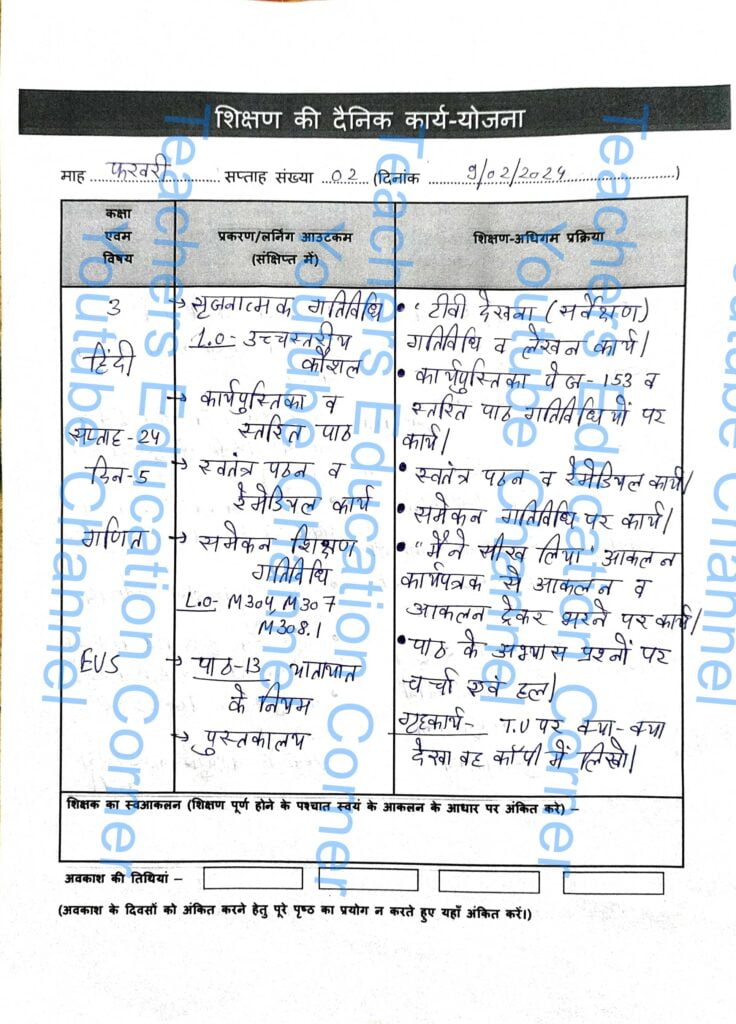 शिक्षण की दैनिक कार्य-योजना
माह फरवरी सप्ताह संख्या 02 (दिनांक 9/02/2024)
कक्षा
एवम
विषय
प्रकरण/लर्निंग आउटकम
(संक्षिप्त में)
शिक्षण-अधिगम प्रक्रिया
3
हिंदी
सप्ताह-24
दिन-5
गणित
EVS
→ सृजनात्मक गतिविधि
L.O- उच्चस्तरीय
कौशल
→ कार्यपुस्तिका व
स्तरित पाठ
→ स्वतंत्र पठन व
रेमेडियल कार्य
→ समेकन शिक्षण
गतिविधि
L.O- M304, M307
M308.1
→ पाठ-13 यातायात
के नियम
→ पुस्तकालय
• "टीवी देखना (सर्वेक्षण)
गतिविधि व लेखन कार्य।
• कार्यपुस्तिका पेज-153 व
स्तरित पाठ गतिविधियों पर
कार्य।
• स्वतंत्र पठन व रेमेडियल कार्य।
• समेकन गतिविधि पर कार्य।
• "मैंने सीख लिया" आकलन
कार्यपत्रक से आकलन व
आकलन ट्रेकर भरने पर कार्य।
• पाठ के अभ्यास प्रश्नों पर
चर्चा एवं हल।
गृहकार्य- T.V पर क्या-क्या
देखा वह कॉपी में लिखो।
शिक्षक का स्वआकलन (शिक्षण पूर्ण होने के पश्चात स्वयं के आकलन के आधार पर अंकित करे) –
अवकाश की तिथियां –
(अवकाश के दिवसों को अंकित करने हेतु पूरे पृष्ठ का प्रयोग न करते हुए यहाँ अंकित करें।)
Teachers Education Corner
Youtube Channel
Teachers Education Corner
Youtube Channel
Teachers Education Corner
Youtube Channel